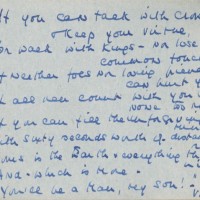 If you can talk with Crow
keep your virtue,
Or walk with Kings - nor lose
common touch
If neither foes nor loving
can hurt y
If all men count with you
none too m
If you can fill the unforgiving
Minu
With sixty seconds worth of distan
Yours is the Earth & everything th
And - which is more -
You'll be a Man, my son! -